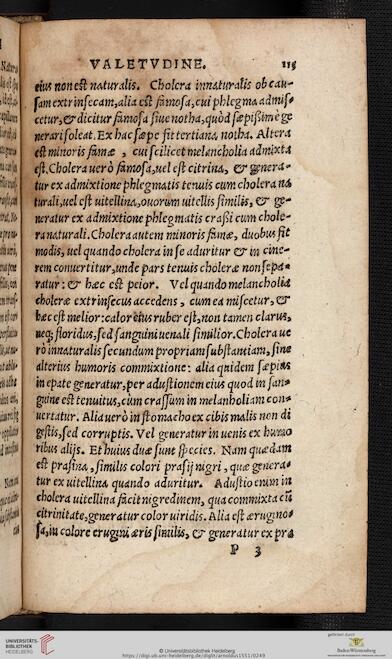 VALETVDINE. 115
eius non est naturalis. Cholera innaturalis ob cau-
sam extrinsecam, alia est famosa, cui phlegma admis-
cetur, & dicitur famosa siue notha, quòd sæpissimè ge
nerari soleat. Ex hac sæpe fit tertiana notha. Altera
est minoris famæ, cui scilicet melancholia admixta
est. Cholera uerò famosa, uel est citrina, & genera-
tur ex admixtione phlegmatis tenuis cum cholera na
turali, uel est uitellina, ouorum uitellis similis, & ge-
neratur ex admixtione phlegmatis crassi cum chole-
ra naturali. Cholera autem minoris famæ, duobus fit
modis, uel quando cholera in se aduritur & in cine-
rem conuertitur, unde pars tenuis choleræ non sepa-
ratur: & hæc est peior. Vel quando melancholia
choleræ extrinsecus accedens, cum ea miscetur, &
hæc est melior: calor eius ruber est, non tamen clarus,
neq; floridus, sed sanguini uenali similior. Cholera ue
rò innaturalis secundum propriam substantiam, sine
alterius humoris commixtione: alia quidem sæpius
in epate generatur, per adustionem eius quod in san-
guine est tenuius, cum crassum in melancholiam con-
uertatur. Alia uerò in stomacho ex cibis malis non di
gestis, sed corruptis. Vel generatur in uenis ex humo
ribus alijs. Et huius duæ sunt species. Nam quædam
est prasina, similis colori prasij nigri, quæ genera-
tur ex uitellina quando aduritur. Adustio enim in
cholera uitellina facit nigredinem, qua commixta cū
citrinitate, generatur color uiridis. Alia est ærugino-
sa, in colore erugini æris similis, & generatur ex pra
P 3
UNIVERSITÄTS-
BIBLIOTHEK
HEIDELBERG
© Universitätsbibliothek Heidelberg
https://digi.ub.uni-heidelberg.de/diglit/arnoldus1551/0249
gefördert durch
Baden-Württemberg